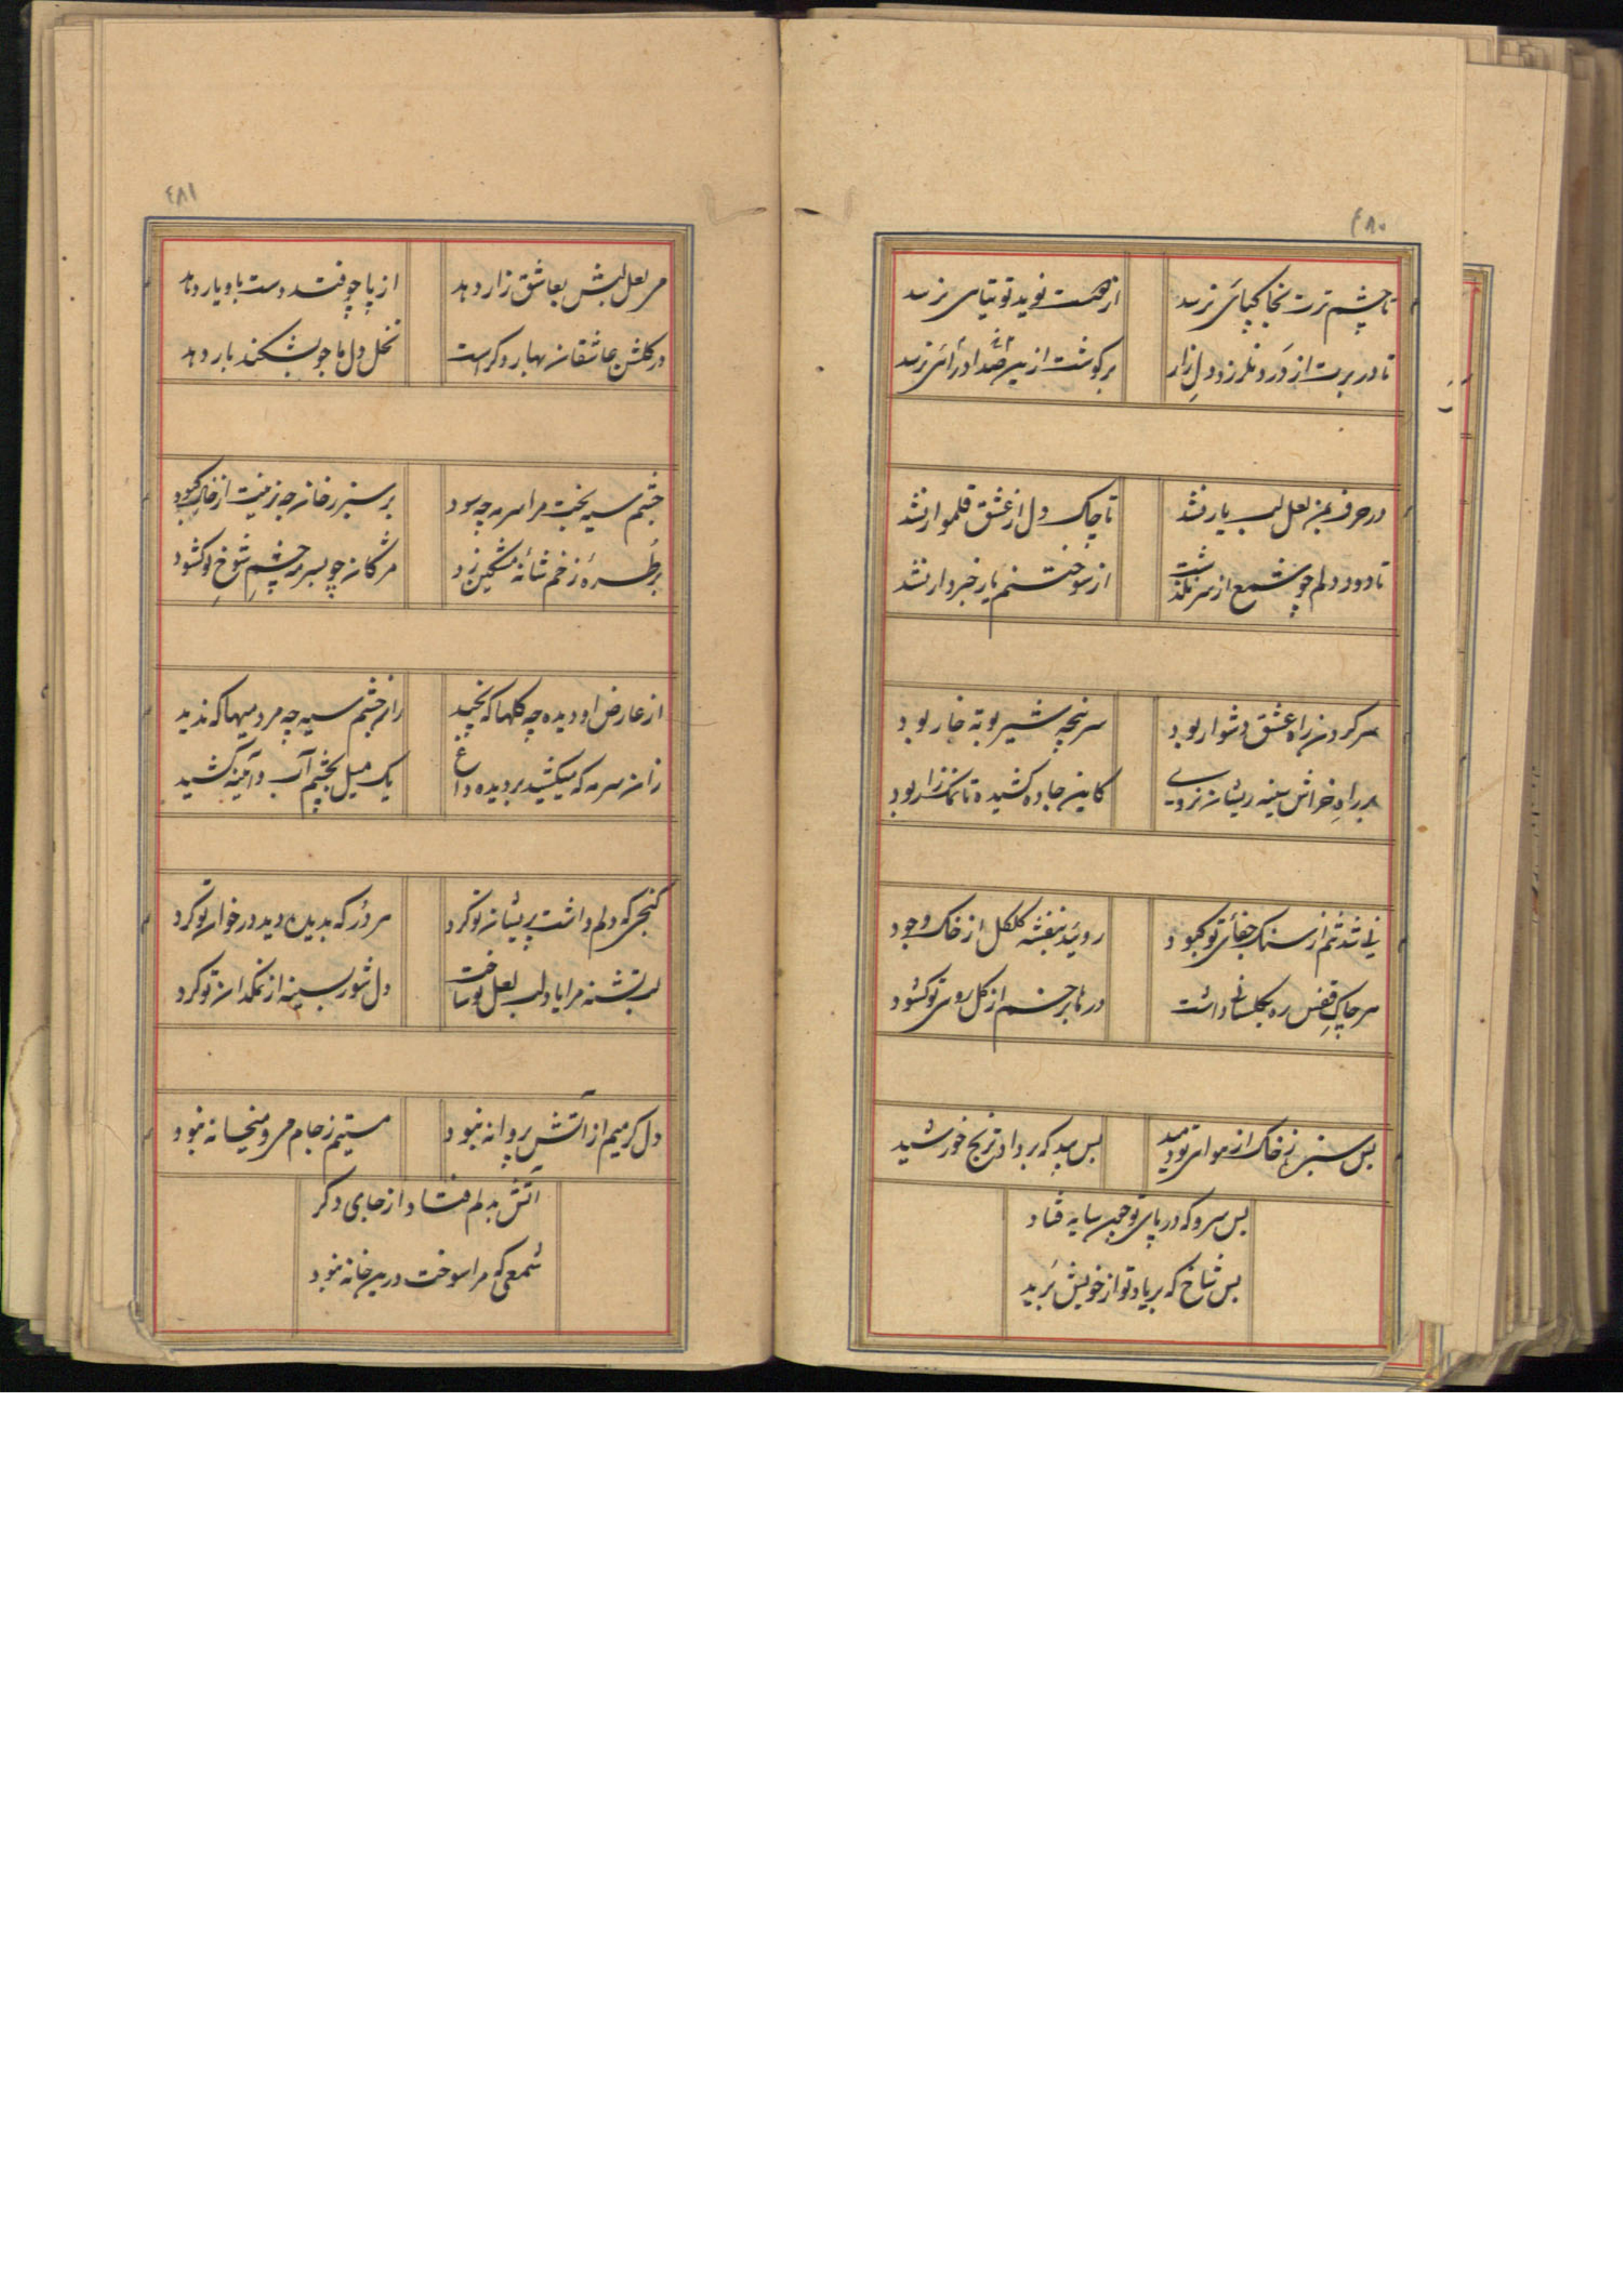 ٤٨٠
تا چشم ترت بخاکپائی نرسد
از نکهت نوید توتیای نرسد
تا در برت از درد نلرزد دل زار
بر گوشت ازین صدا درائی نرسد
در حرف بمن لعل لب یار نشد
تا چاک دل از عشق قلموار نشد
تا دود دلم چو شمع از سر نگذشت
از سوختنم یار خبردار نشد
سر کردن راه عشق دشوار بود
سر پنجه شیر بوته خار بود
بر راه خراش سینه ریشان نروی
کاین جاده کشیده تا نمکزار بود
نی شد تنم از سنک جفای تو کبود
روئید بنفشه کل کل از خاک وجود
هر چاک قفس ره بکلستانی داشت
در بر خم از کل روی تو کشود
بس سبزه ز خاک از هوای تو دمید
بس به که برداد ترنج خورشید
بس سرو که در پای تو چون سایه فتاد
بس شاخ که بر یاد تو از خویش برید
٤٨١
می لعل لبش بعاشق زار دهد
از پا چو فتد دست باو یار دهد
در کلشن عاشقان بهار دکر است
نخل دل ما چو بشکند بار دهد
چشم سیه بخت مرا سرمه چه سود
بر سبز رخان چه زینت از خاک کبود
بر طره زخم شانه مشکین زد
مژکان چو بسرمه چشم شوخ تو کشود
از عارض او دیده چه کلها که نچید
زان چشم سیه چه مردمیها که ندید
زان سرمه که میکشید بر دیده داغ
یک میل بچشم آب و آئینه کشید
کنجی که دلم داشت پریشان تو کرد
هر در که بدیدن دید در خوان تو کرد
لب تشنه مرا یاد لب لعل تو ساخت
دل شور بسینه از نمکدان تو کرد
دل کرمیم از آتش پروانه نبود
مستیم ز جام می و میخانه نبود
آتش بدلم فتاد از جای دکر
شمعی که مرا سوخت درین خانه نبود